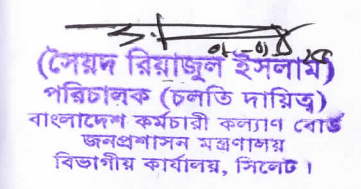 (সৈয়দ রিয়াজুল ইসলাম)
পরিচালক (চলতি দায়িত্ব)
বাংলাদেশ কর্মচারী কল্যাণ বোর্ড
জনপ্রশাসন মন্ত্রণালয়
বিভাগীয় কার্যালয়, সিলেট।